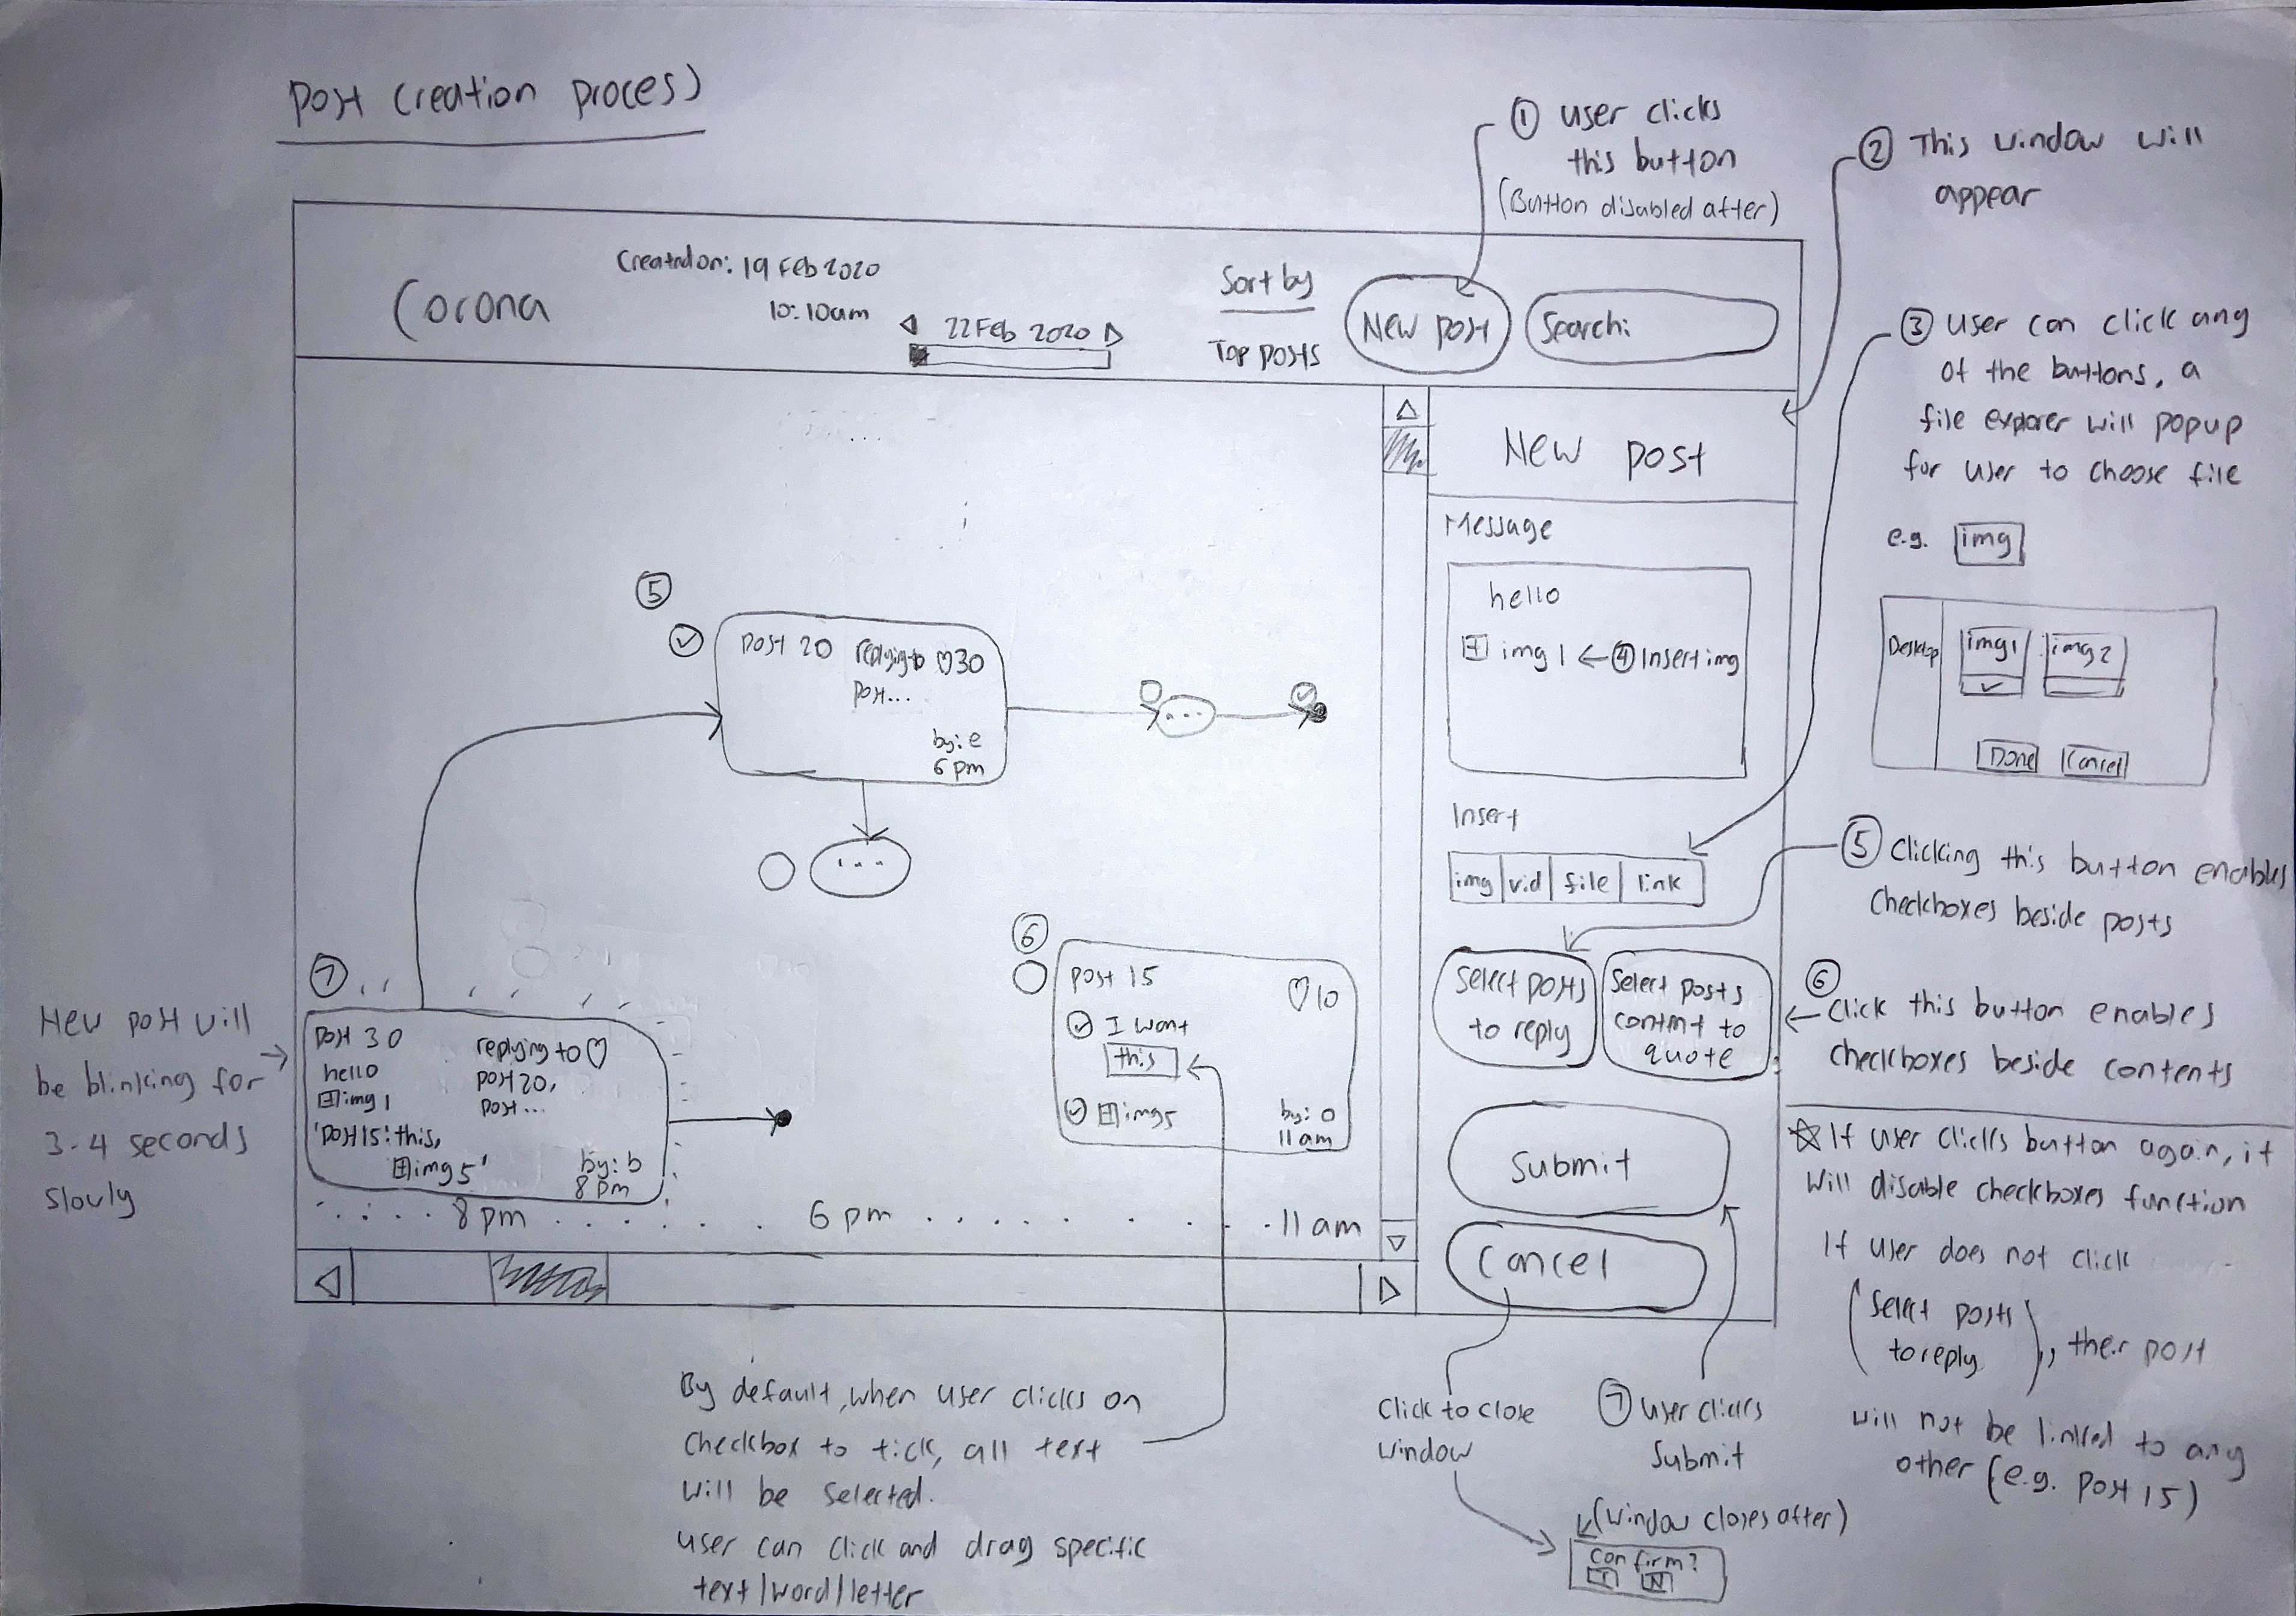 Post Creation process
① User clicks
this button
(Button disabled after)
② This window will
appear
Corona
Created on: 19 Feb 2020
10:10am
22 Feb 2020
Sort by
Top posts
New post
Search:
③ User can click any
of the buttons, a
file explorer will popup
for user to choose file
e.g. img
Desktop
img1
img2
Done
Cancel
New post
Message
hello
img 1 ← ④ Insert img
Insert
img
vid
file
link
⑤ Clicking this button enables
checkboxes beside posts
Select posts
to reply
Select posts
content to
quote
⑥
Click this button enables
checkboxes beside contents
Submit
Cancel
☆ If user clicks button again, it
will disable checkboxes function
If user does not click
(Select posts
to reply), their post
will not be linked to any
other (e.g. post 15)
⑤
Post 20
replying to
post...
♡30
by: e
6 pm
...
...
⑥
Post 15
♡10
I want
this
img5
by: o
11 am
⑦
New post will
be blinking for
3-4 seconds
slowly
Post 30
hello
img 1
'Post 15: this,
img 5'
replying to ♡
post 20,
post...
by: b
8 pm
8 pm
6 pm
11 am
By default, when user clicks on
checkbox to tick, all text
will be selected.
User can click and drag specific
text/word/letter
Click to close
window
⑦ User clicks
Submit
(Window closes after)
Confirm?
Y N